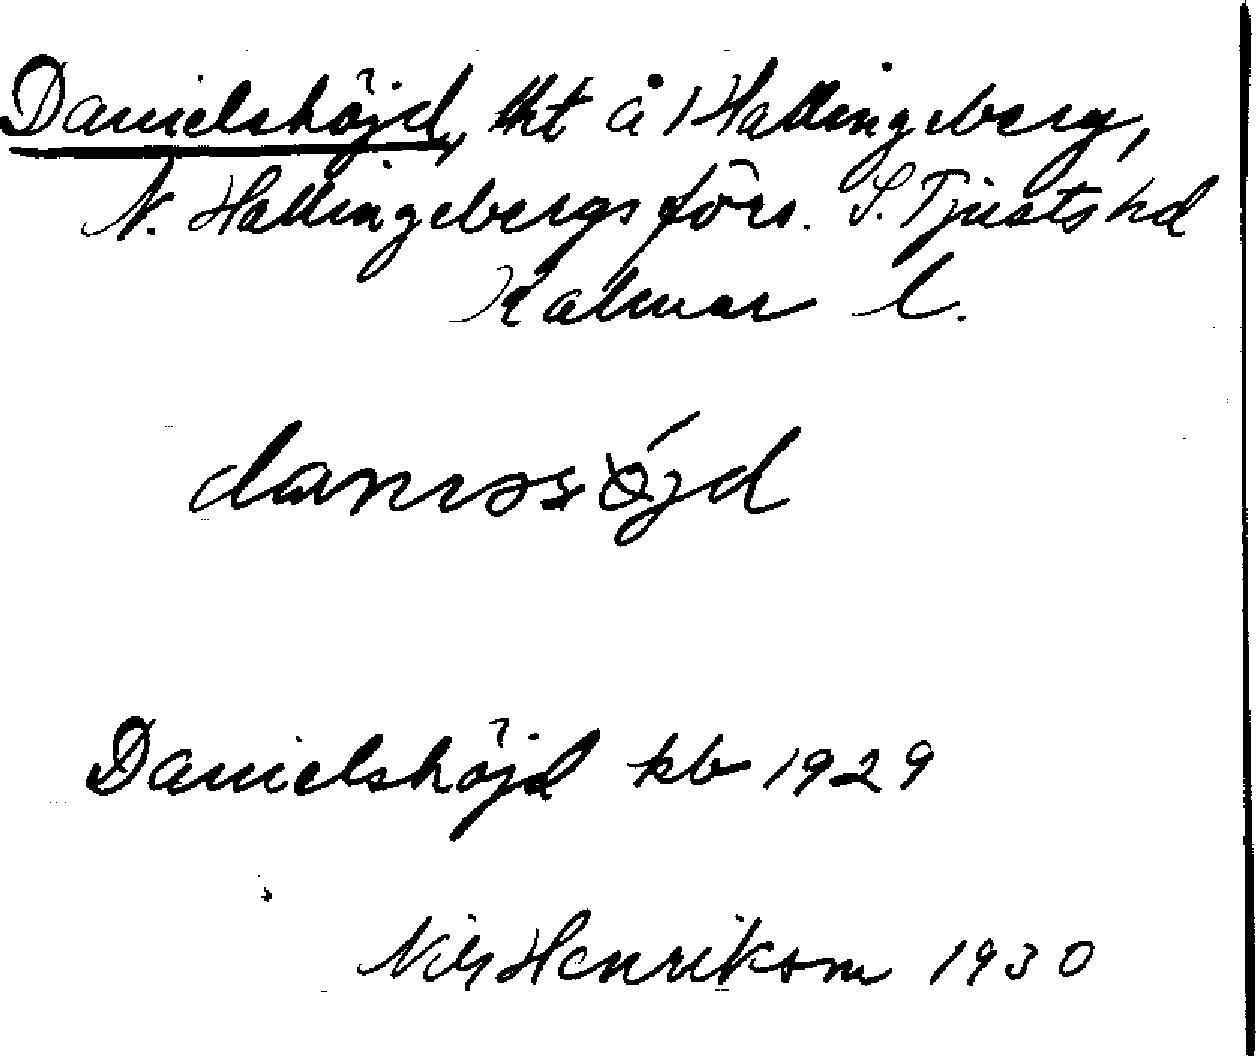 Danielshöjd, lht å Hallingeberg,
N. Hallingebergs förs. S. Tjusts hd
Kalmar l.
Danielshöjd kb 1929
Nils Henriksson 1930